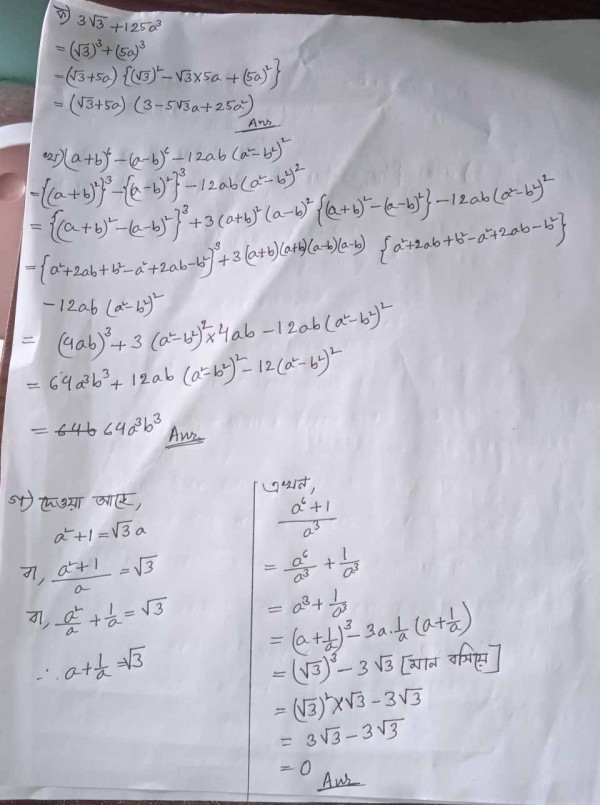 ক) 3√3 + 125a³
= (√3)³ + (5a)³
= (√3+5a) {(√3)² - √3×5a + (5a)²}
= (√3+5a) (3 - 5√3a + 25a²)
Ans
খ) (a+b)⁶ - (a-b)⁶ - 12ab (a²-b²)²
= {(a+b)²}³ - {(a-b)²}³ - 12ab (a²-b²)²
= {(a+b)² - (a-b)²}³ + 3 (a+b)² (a-b)² {(a+b)² - (a-b)²} - 12ab (a²-b²)²
= {a²+2ab+b²-a²+2ab-b²}³ + 3 (a+b)(a+b)(a-b)(a-b) {a²+2ab+b²-a²+2ab-b²}
- 12ab (a²-b²)²
= (4ab)³ + 3 (a²-b²)² × 4ab - 12ab (a²-b²)²
= 64a³b³ + 12ab (a²-b²)² - 12 (a²-b²)²
= 64b 64a³b³ Ans
গ) দেওয়া আছে,
a²+1 = √3 a
বা, (a²+1)/a = √3
বা, a²/a + 1/a = √3
∴ a + 1/a = √3
এখন,
(a⁶+1)/a³
= a⁶/a³ + 1/a³
= a³ + 1/a³
= (a + 1/a)³ - 3a·1/a (a + 1/a)
= (√3)³ - 3√3 [মান বসিয়ে]
= (√3)² × √3 - 3√3
= 3√3 - 3√3
= 0
Ans